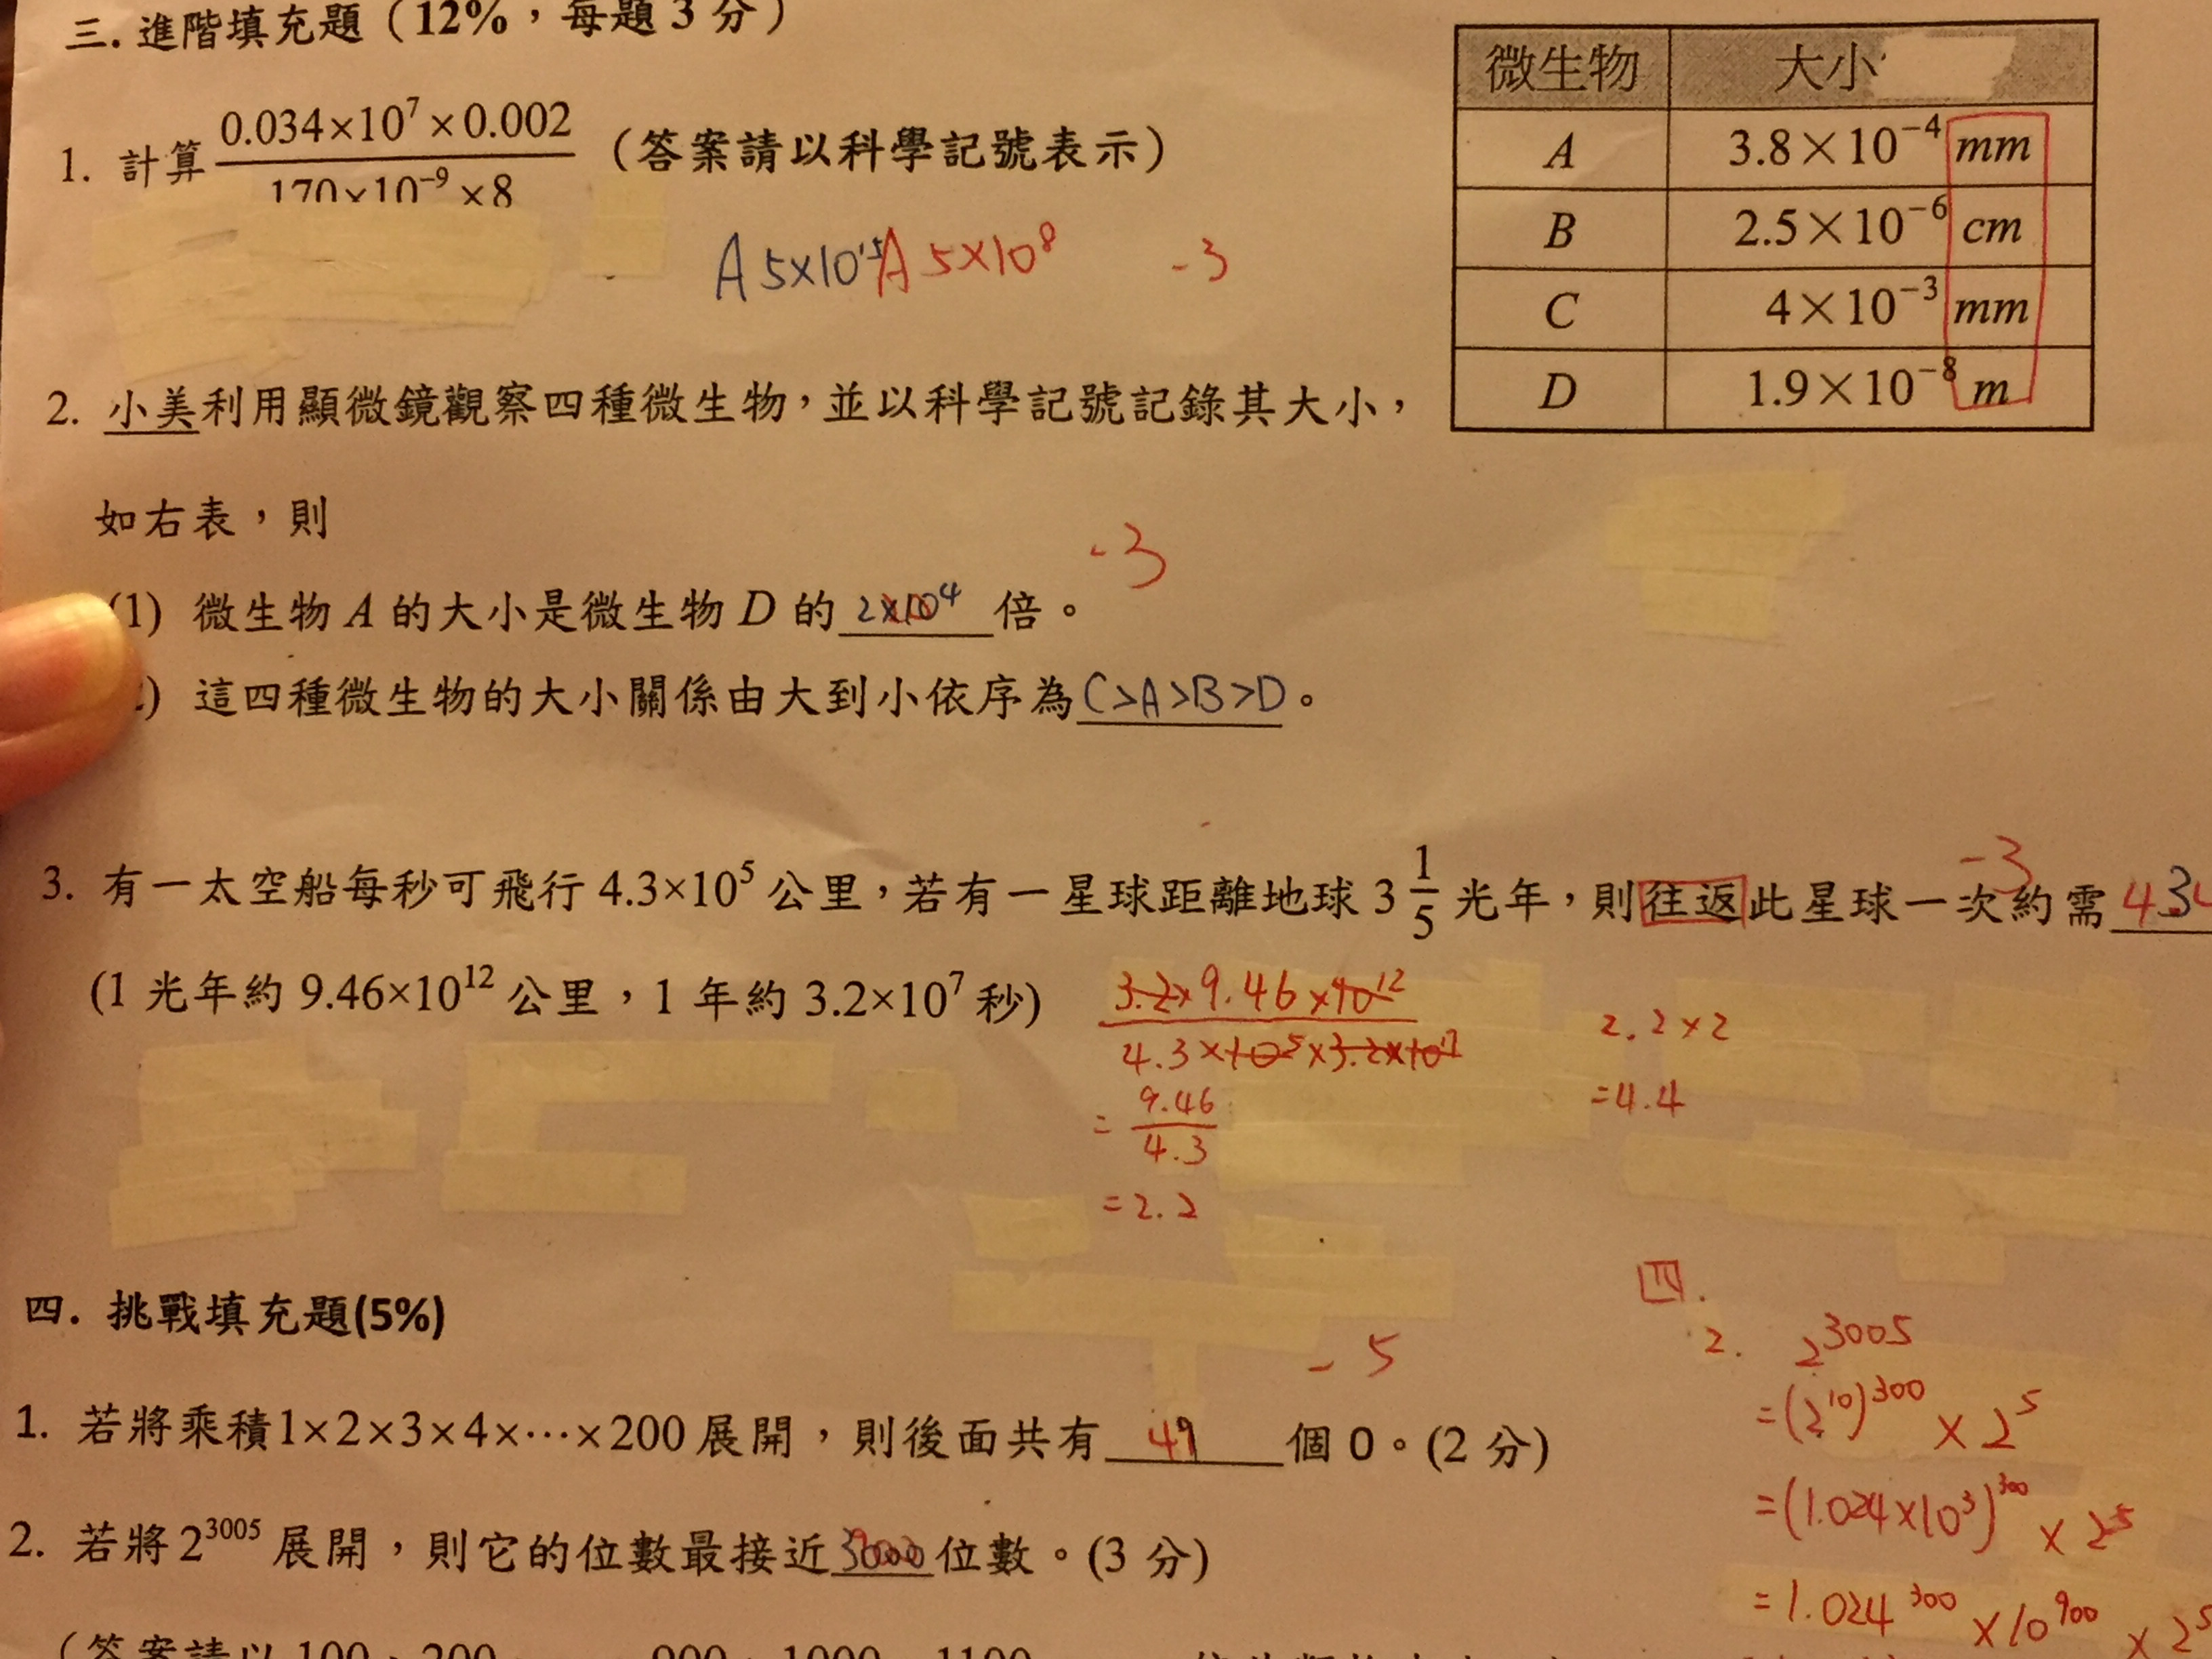 三. 進階填充題（12%，每題 3 分）
1. 計算 0.034×10⁷×0.002 / 170×10⁻⁹×8 （答案請以科學記號表示）
A 5×10 A 5×10⁸ -3
微生物 大小
A 3.8×10⁻⁴ mm
B 2.5×10⁻⁶ cm
C 4×10⁻³ mm
D 1.9×10⁻⁸ m
2. 小美利用顯微鏡觀察四種微生物，並以科學記號記錄其大小，
如右表，則
-3
(1) 微生物 A 的大小是微生物 D 的 2×10⁴ 倍。
) 這四種微生物的大小關係由大到小依序為 C>A>B>D。
-3
3. 有一太空船每秒可飛行 4.3×10⁵ 公里，若有一星球距離地球 3 1/5 光年，則往返此星球一次約需
(1 光年約 9.46×10¹² 公里，1 年約 3.2×10⁷ 秒)
3.2×9.46×10¹² / 4.3×10⁵×3.2×10⁷
= 9.46 / 4.3
= 2.2
2.2×2
=4.4
四. 挑戰填充題(5%)
-5
1. 若將乘積1×2×3×4×⋯×200 展開，則後面共有 49 個 0。(2 分)
2. 若將 2³⁰⁰⁵ 展開，則它的位數最接近 位數。(3 分)
（答案請以 100、200、 900、1000、1100
四.
2. 2³⁰⁰⁵
=(2¹⁰)³⁰⁰ × 2⁵
=(1.024×10³)³⁰⁰ × 2⁵
=1.024³⁰⁰ ×10⁹⁰⁰ × 2⁵